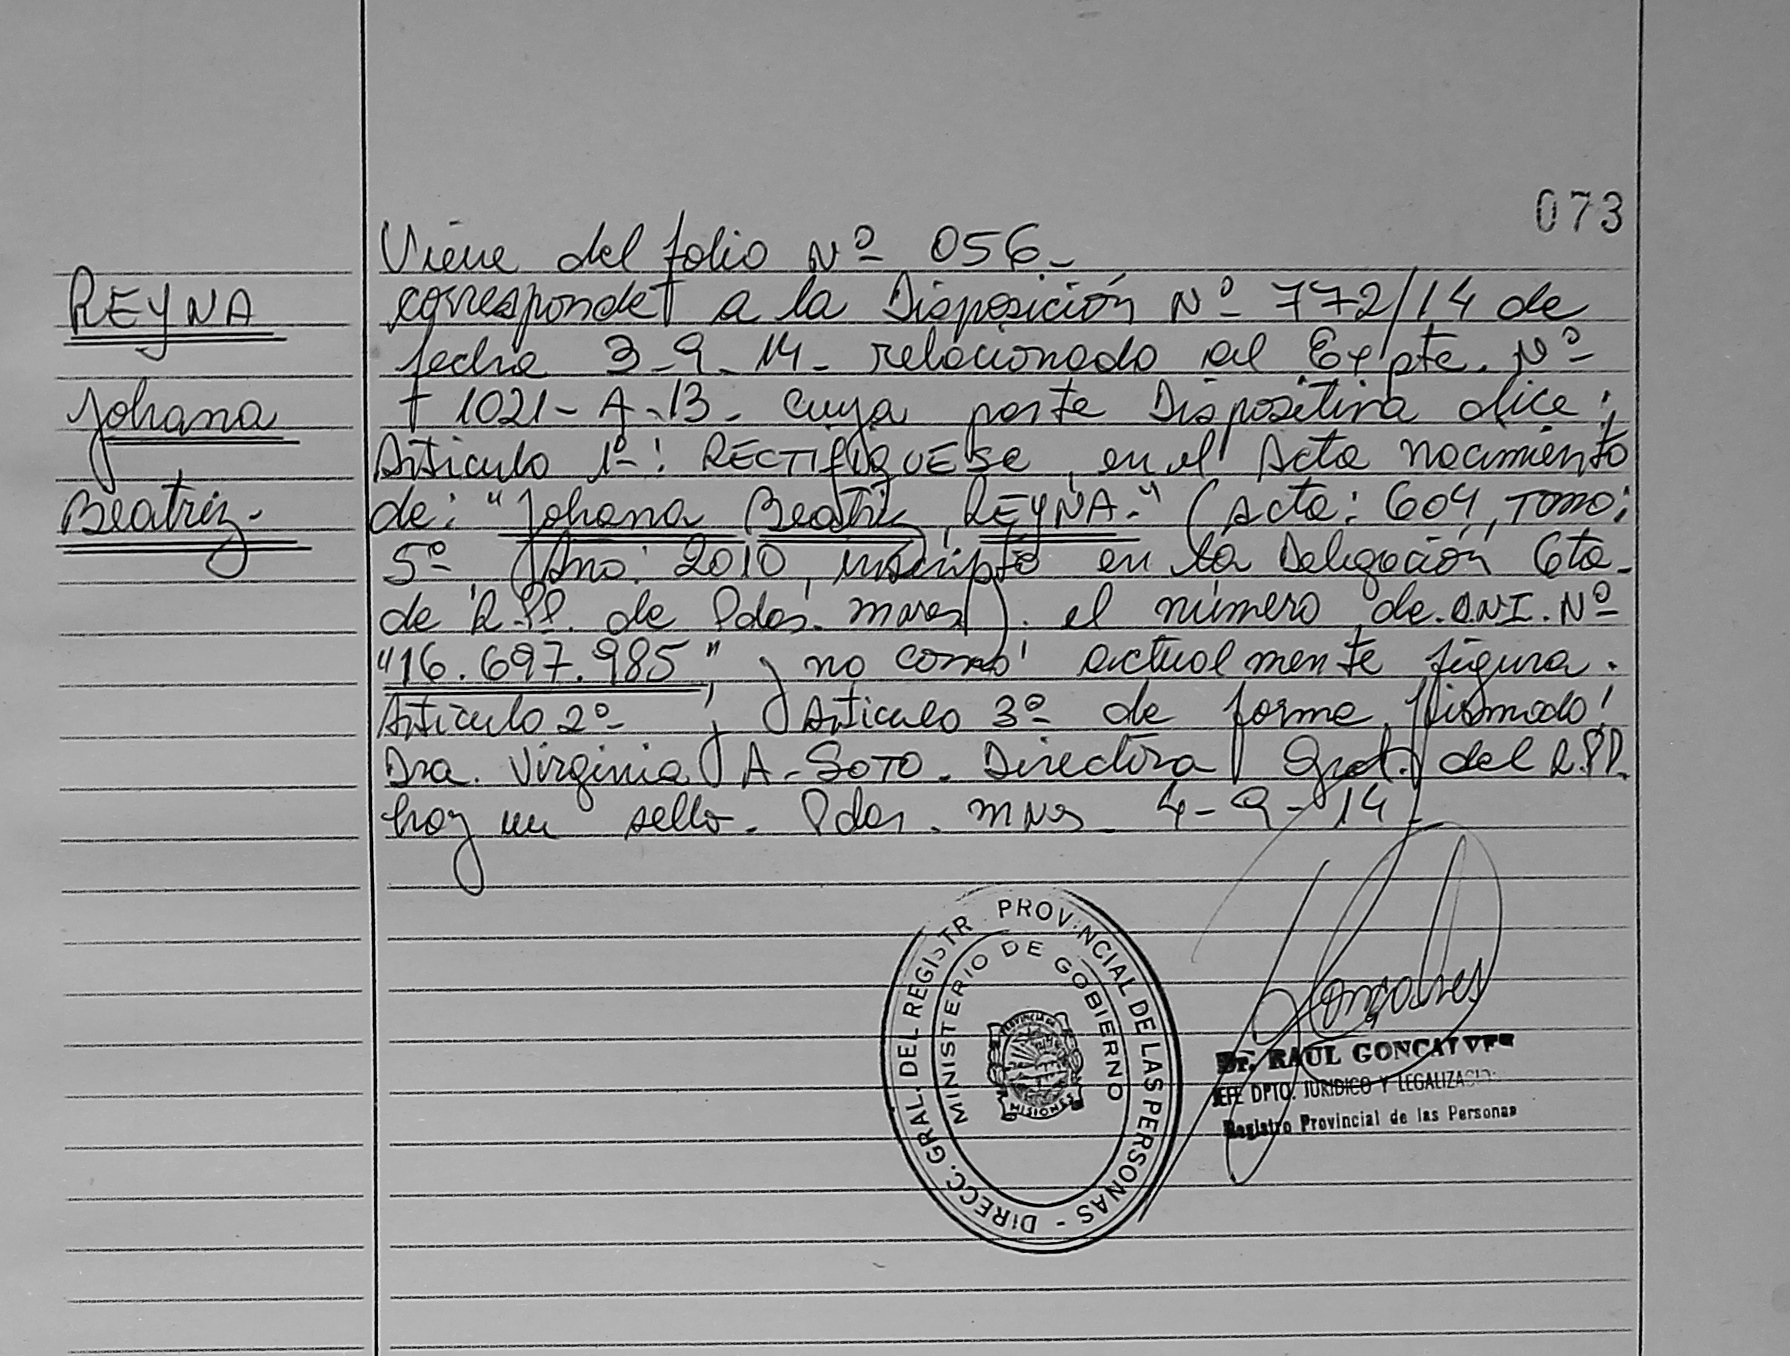 073
REYNA
Johana
Beatriz.-
Viene del folio Nº 056_
corresponde a la Disposición Nº 772/14 de
fecha 3-9-14- relacionado al Expte. Nº
1021-A-13- cuya parte Dispositiva dice:
Artículo 1º-: RECTIFIQUESE, en el Acta nacimiento
de: "Johana Beatriz REYNA-" (Acta: 604, Tomo:
5º, Año: 2010, inscripto en la Delegación 6ta-
de R.PP. de Pdas. mnes). el número de D.N.I. Nº
"16.697.985", y no como actualmente figura.
Artículo 2º- y Artículo 3º de forma, firmado:
Dra. Virginia A. SOTO. Directora Gral. del R.PP.
hay un sello. Pdas. mns. 4-9-14
DIRECC. GRAL. DEL REGISTR PROVINCIAL DE LAS PERSONAS -
MINISTERIO DE GOBIERNO
PROVINCIA DE
MISIONES
Gonçalves
Dr. RAUL GONCALVES
JEFE DPTO. JURIDICO Y LEGALIZACIO
Registro Provincial de las Personas